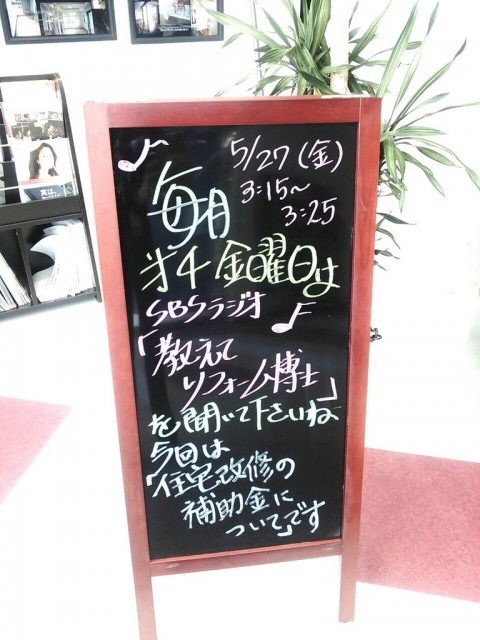 5/27(金)
3:15〜
3:25
毎月
オ4金曜日は
SBSラジオ
「教えて
リフォーム博士」
を聞いて下さいね
今回は
「住宅改修の
補助金に
ついて」です